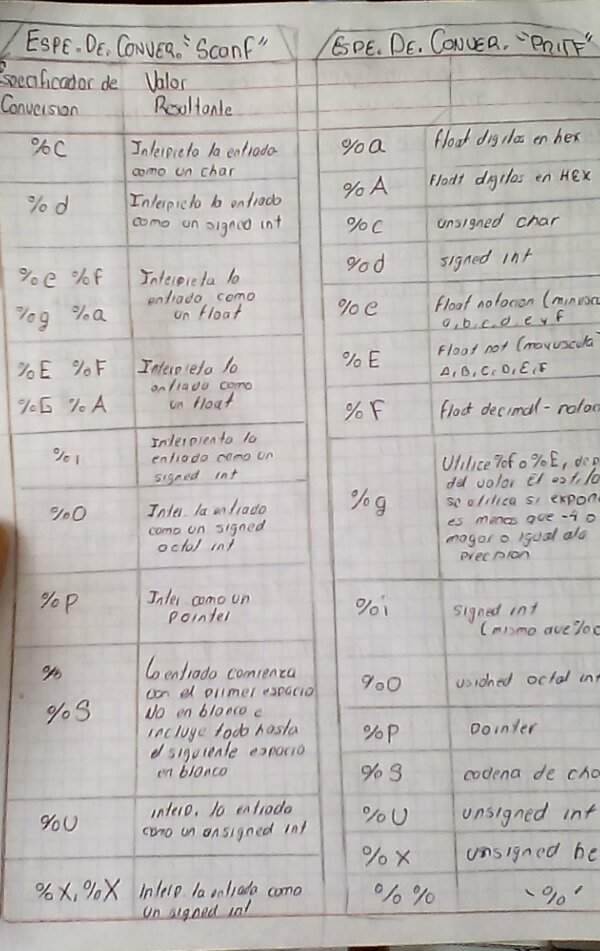 ESPE. DE. CONVER. "Scanf"
Especificador de
Conversion
Valor
Resultante
%C
Interpreta la entrada
como un char
%d
Interpreta la entrada
como un signed int
%e %f
%g %a
Interpreta la
entrada como
un float
%E %F
%G %A
Interpreta la
entrada como
un float
%i
entrada como un
signed int
%O
Inter. la entrada
como un signed
octal int
%P
Inter como un
Pointer
%
%S
La entrada comienza
con el primer espacio
No en blanco e
incluye todo hasta
el siguiente espacio
en blanco
%U
interp. la entrada
como un unsigned int
%X, %X
Interp. la entrada como
un signed int
ESPE. DE. CONVER. "PRITF"
%a
float digitos en hex
%A
float digitos en HEX
%c
unsigned char
%d
signed int
%e
float notacion (minusc
a, b, c, d e y f
%E
Float not (mayuscula
A, B, C, D, E, F
%F
float decimal - notac
%g
Utilice %f o %E, dep
del valor El estilo
se utiliza si expon
es menos que -4 o
mayor o igual ala
precision
%i
signed int
(mismo que %
%O
octal int
%P
Pointer
%S
cadena de cha
%U
unsigned int
%X
unsigned he
%%
"%"